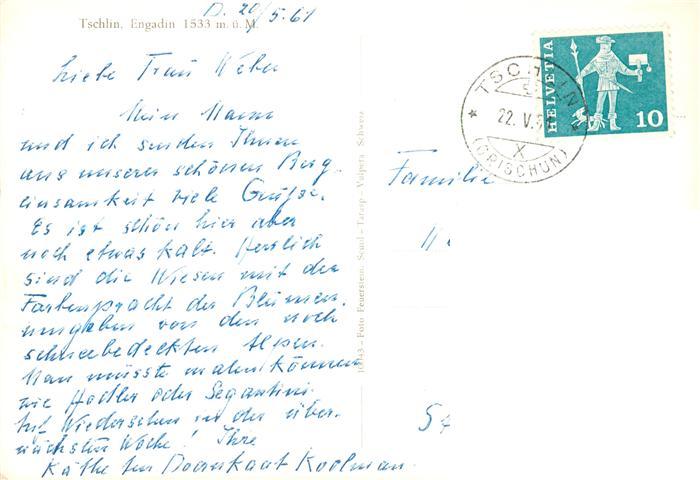 D. 20/5.61
Tschlin, Engadin 1533 m. ü. M.
Liebe Frau Weber
Mein Mann
und ich senden Ihnen
aus unserer schönen Berg
einsamkeit viele Grüße.
Es ist schön hier aber
noch etwas kalt. Herrlich
sind die Wiesen mit der
Farbenpracht der Blumen.
umgeben von den noch
schneebedeckten Alpen.
Man müsste malen können
wie Hodler oder Segantini
Auf Wiedersehen in der über-
nächsten Woche! Ihre
Käthe ten Doornkaat Koolman.
10143 - Foto Feuerstein, Scuol - Tarasp - Vulpera Schweiz
HELVETIA
10
TSCHLIN
22. V.
X
(GRISCHUN)
Familie